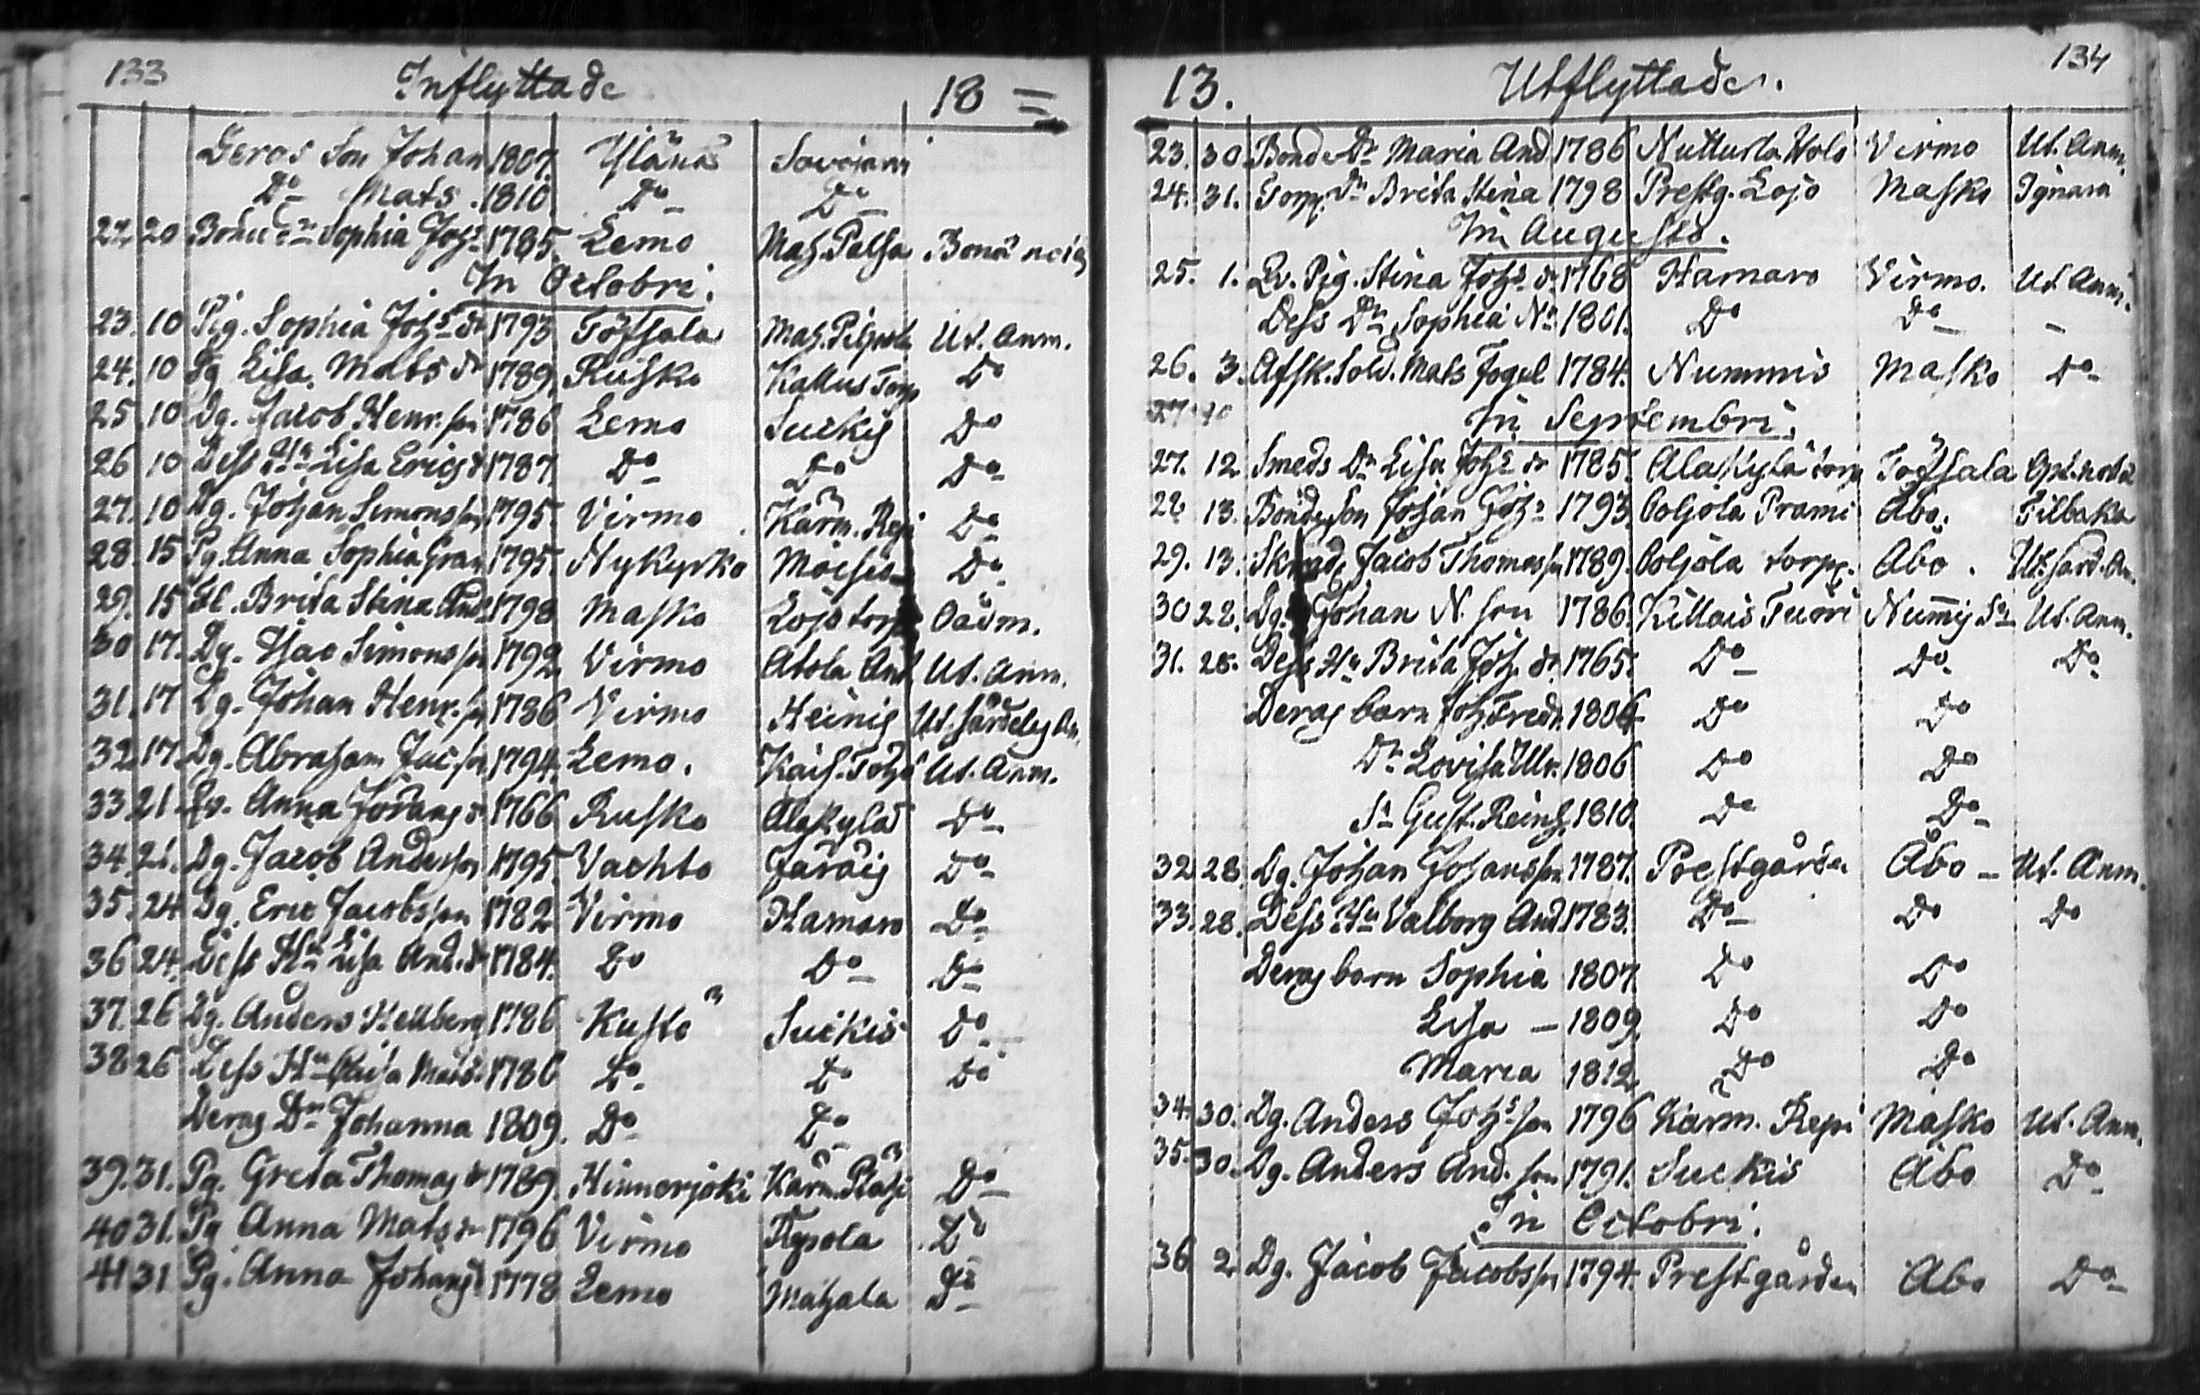 133 Inflyttade 18 =
Deras Son Johan 1807. Yläne Savojani
Do Mats. 1810 Do Do
22. 20 Sophia Johs 1785. Lemo
In Octobri.
23. 10 Pig. Sophia Johs dr 1793 Töfsala Ut. Anm.
24. 10 Pg Lisa Mats dr 1789. Rusko Kallus Torp Do
25. 10 Dg. Jacob Henr. son 1786 Lemo Suckis Do
26 10 Dess Hu Lisa Erics d 1787. Do Do Do
27. 10 Dg. Johan Simonsson 1795. Virmo Kärm. Repi Do
28. 15 Pg. Anna Sophia Gran 1795. Nykyrko Moisio Do
29. 15 Brita Stina And 1798 Masko Lojo torp
30 17. Dg. Isac Simonsson 1792. Virmo Atola Ut. Anm.
31. 17 Dg. Johan Henr. son 1786 Virmo Heinis
32. 17. Dg. Abraham Jac. son 1794. Lemo. Ut. Anm.
33 21. Anna Johans d 1766 Rusko Alakylä Do
34. 21. Dg. Jacob Andersson 1795. Vachto Järäis Do
35. 24 Dg. Eric Jacobsson 1782 Virmo Hamaro Do
36 24. Dess Hu Lisa And. dr 1784. Do Do Do
37. 26 Dg. Anders Hellberg 1786 Kustö Suckis Do
38 26 Dess Hu Mats. 1786 Do Do Do
Deras Dr Johanna 1809. Do Do
39. 31. Pg. Greta Thomas d 1789. Hinnerjoki Kärm. Do
40 31. Pg Anna Mats dr 1796 Virmo Do
41 31 Pg. Anna Johans d 1778 Lemo Do
13. Utflyttade. 134
23. 30. Bonde Dr Maria And 1786 Virmo Ut. Anm.
24. 31. Torp. Dr Brita Stina 1798 Prestg. Lojo Masko
In Augusto.
25. 1. Pig. Stina Johs dr 1768 Hamaro Virmo. Ut. Anm.
Dess Dr Sophia N. 1801. Do Do –
26. 3. Afsk. Sold. Mats Fogel 1784. Nummis Masko Do
In Septembri.
27. 12 Smeds Dr Lisa Johs dr 1785. Alakylä torp Töfsala
28 13. Bonde Son Johan Johs 1793. Poljola Prami Åbo. Tilbaka
29. 13. Jacob Thomasson 1789. Poljola torp. Åbo.
30 22. Dg. Johan N. son 1786. Killais Tuori Ut. Anm.
31. 28. Dess Hu Brita Joh. dr 1765. Do Do Do
Deras barn 1804 Do Do
Dr Lovisa Ulr. 1806 Do Do
Sn Gust. Reinh. 1810. Do Do
32. 28. Dg. Johan Johansson 1787. Prestgården Åbo – Ut. Anm.
33. 28. Dess Hu Valborg And. 1783. Do Do Do
Deras barn Sophia 1807 Do Do
Lisa – 1809. Do Do
Maria 1812. Do Do
34. 30. Dg. Anders Johs son 1796 Kärm. Repi Masko Ut. Anm.
35. 30. Dg. Anders And. son 1791. Suckis Åbo Do
In Octobri.
36 2. Dg. Jacob Jacobsson 1794. Prestgården Åbo Do